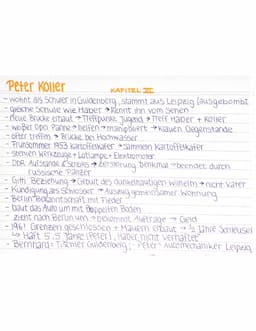 Peter Koller KAPITEL III
- wohnt als Schüler in Guldenberg, stammt aus Leipzig (ausgebombt
- gleiche Schule wie Haber → kennt ihn vom Sehen
- neue Brücke erbaut → Treffpunkt Jugend → Treff Haber + Koller
- weißer Opel Panne → helfen → manipuliert → klauen Gegenstände
- öfter treffen → Brücke bei Hochwasser
- Frühsommer 1953 Kartoffelkäfer → sammeln Kartoffelkäfer
- stehlen Werkzeuge + Lötlampe + Elektromotor
- DDR Aufstände & Streiks → Zerstörung Denkmal → beendet durch
russische Panzer
- Gitti Beziehung → Geburt des dunkelhäutigen Wilhelm → nicht Vater
- Kündigung als Schlosser → Auszug gemeinsamer Wohnung
- Berlin Bekanntschaft mit Fieder
- baut das Auto um mit doppelten Boden
- zieht nach Berlin um → bekommt Aufträge → Geld
- 1961 Grenzen geschlossen + Mauern erbaut → ½ Jahre Schleuser
↳ Haft 5,5 Jahre (Peter), Haber nicht verhaftet
- Bernhard: Tischler Guldenberg; - Peter: Automechaniker Leipzig